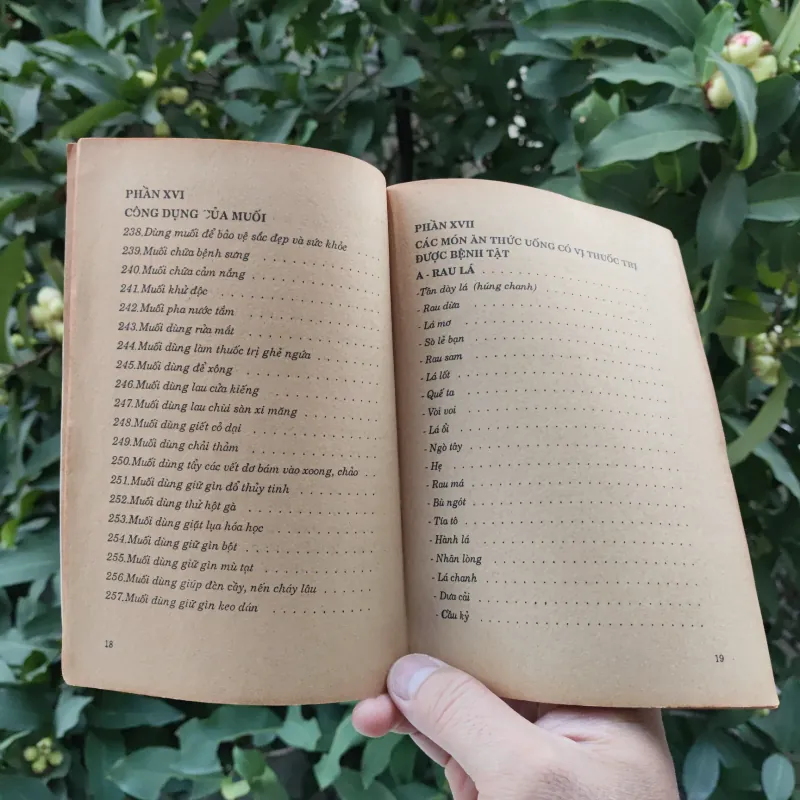 PHẦN XVI
CÔNG DỤNG CỦA MUỐI
238.Dùng muối để bảo vệ sắc đẹp và sức khỏe
239.Muối chữa bệnh sưng
240.Muối chữa cảm nắng
241.Muối khử độc
242.Muối pha nước tắm
243.Muối dùng rửa mắt
244.Muối dùng làm thuốc trị ghẻ ngứa
245.Muối dùng để xông
246.Muối dùng lau cửa kiếng
247.Muối dùng lau chùi sàn xi măng
248.Muối dùng giết cỏ dại
249.Muối dùng chải thảm
250.Muối dùng tẩy các vết dơ bám vào xoong, chảo
251.Muối dùng giữ gìn đồ thủy tinh
252.Muối dùng thử hột gà
253.Muối dùng giặt lụa hóa học
254.Muối dùng giữ gìn bột
255.Muối dùng giữ gìn mù tạt
256.Muối dùng giúp đèn cầy, nến cháy lâu
257.Muối dùng giữ gìn keo dán
18
PHẦN XVII
CÁC MÓN ĂN THỨC UỐNG CÓ VỊ THUỐC TRỊ
ĐƯỢC BỆNH TẬT
A - RAU LÁ
-Tần dày lá (húng chanh)
- Rau dừa
- Lá mơ
- Sò lẻ bạn
- Rau sam
- Lá lốt
- Quế ta
- Vòi voi
- Lá ổi
- Ngò tây
- Hẹ
- Rau má
- Bù ngót
- Tía tô
- Hành lá
- Nhãn lòng
- Lá chanh
- Dưa cải
- Cầu kỷ
19